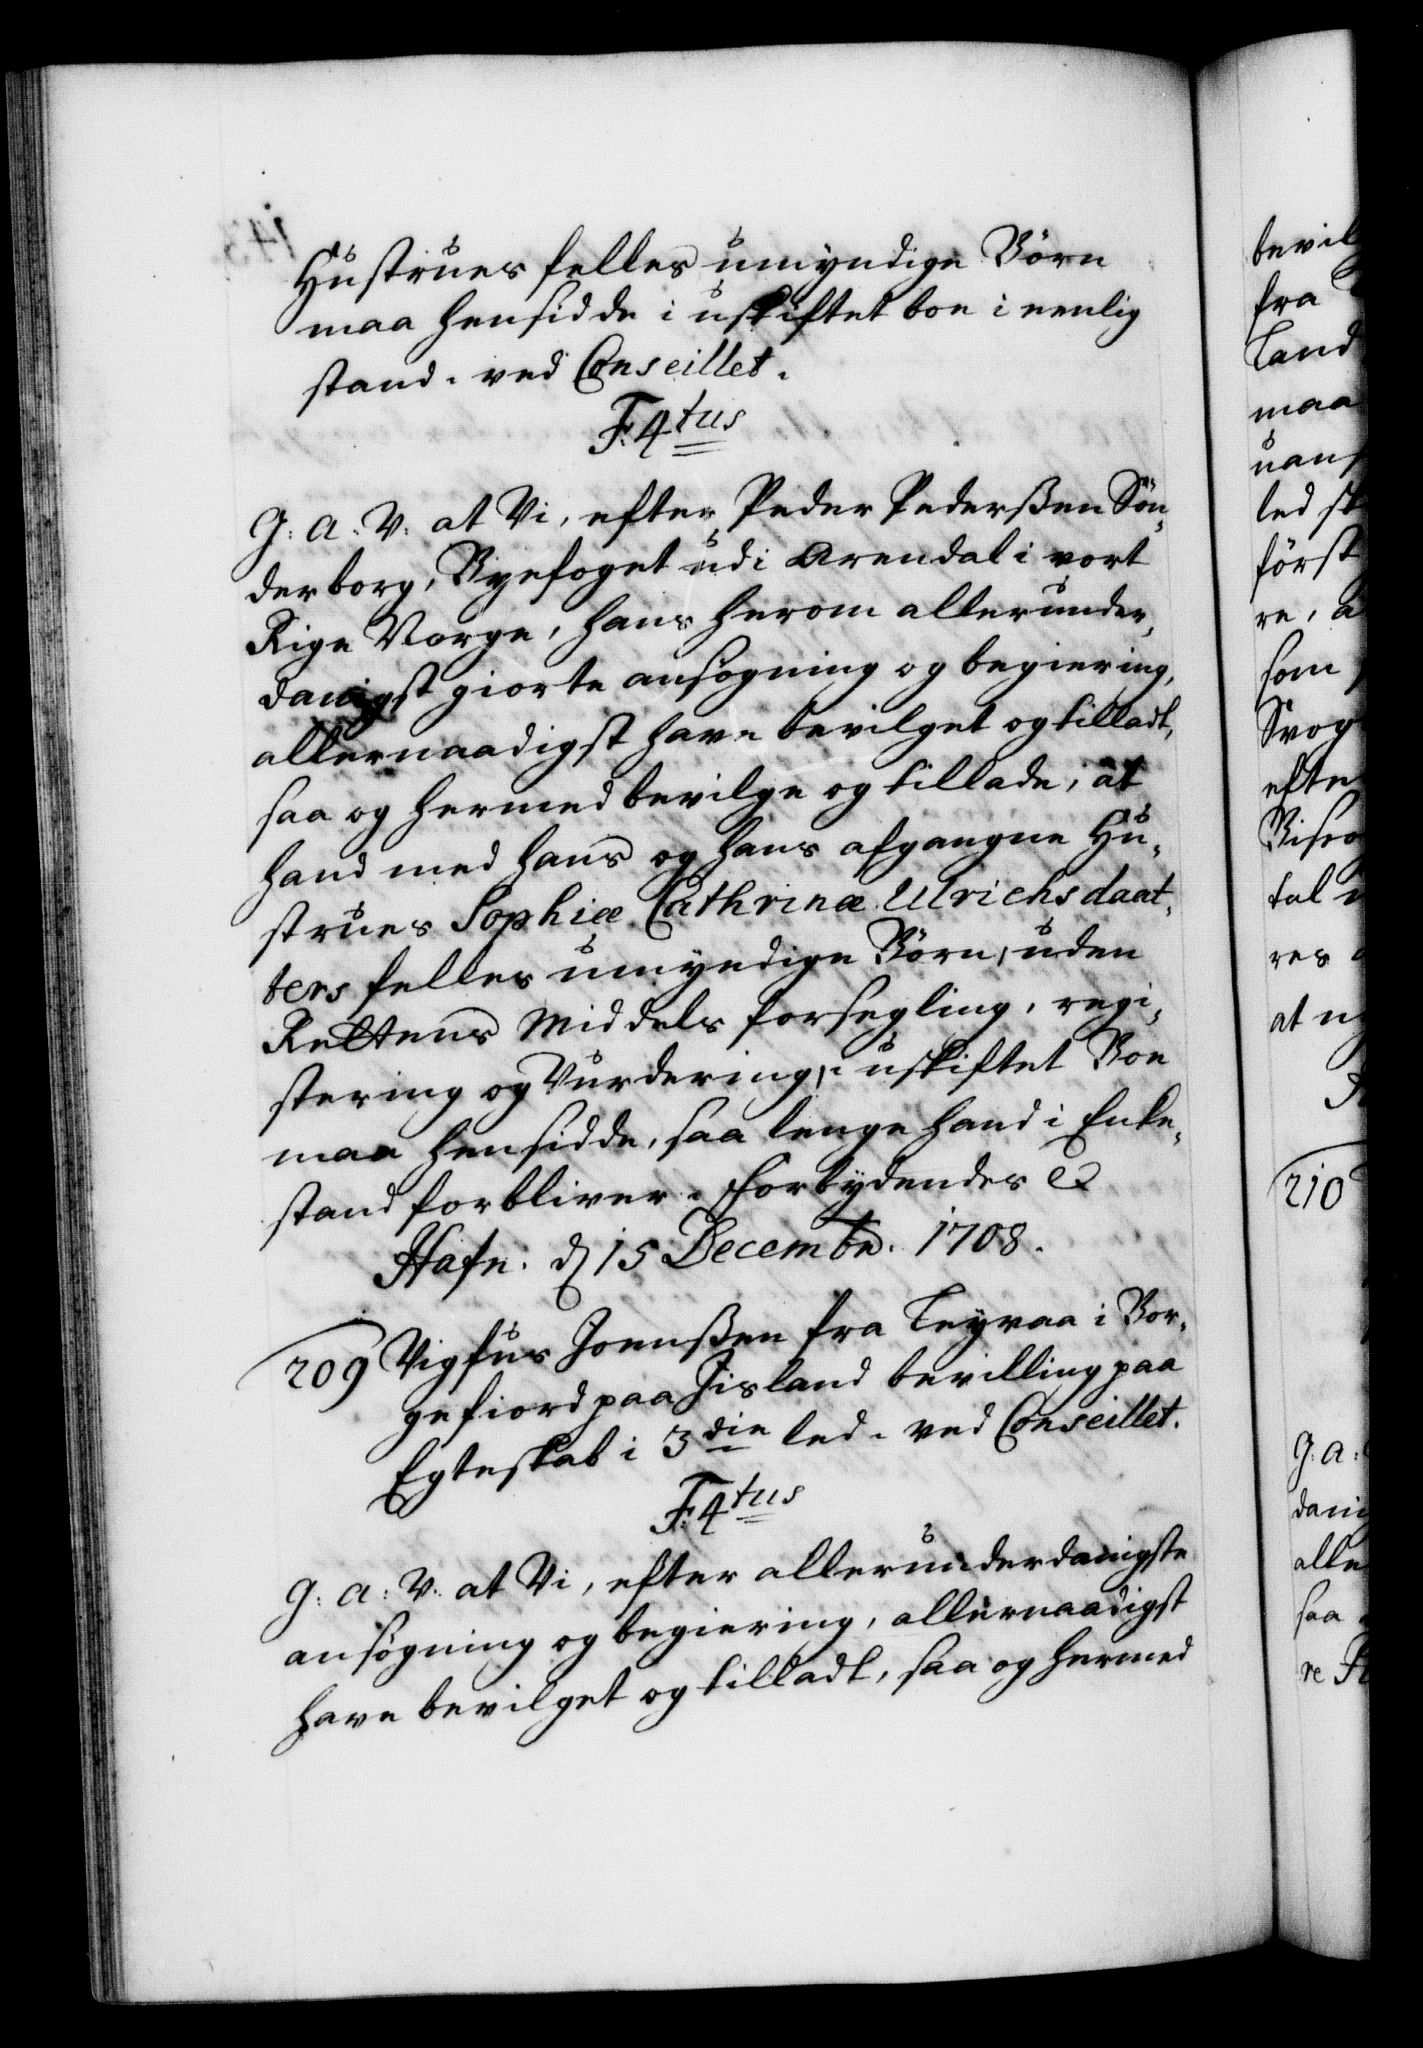 Hustrues felles umyndige Börn
maa hensidde i uskiftet boe i eenlig
stand. ved Conseillet.
F. 4tus
G: A: V: at Vi, efter Peder Pederßen Sön-
derborg, Byefoget udi Arendal i vort
Rige Norge, hans herom allerunder-
danigst giorte ansögning og begiering,
allernaadigst have bevilget og tilladt,
saa og hermed bevilge og tillade, at
hand med hans og hans afgangne Hu-
strues Sophiæ Cathrinæ Ulrichsdaat-
ters felles umyndige Börn, uden
Rettens Middels forsegling, regi-
stering og Vurdering, i uskiftet Boe
maa hensidde, saa lenge hand i Enke-
stand forbliver. Forbydendes etc
Hafn. d 15 Decembr. 1708.
209 Vigfus Joenßen fra Leyraa i Bor-
gefiord paa Jisland bevilling paa
Egteskab i 3die led. ved Conseillet.
F. 4tus
G: A: V: at Vi, efter allerunderdanigste
ansögning og begiering, allernaadigst
have bevilget og tilladt, saa og hermed
bevil
fra
Land
maa
uans
led
först
re,
som
Svog
efte
tal
res
at
210
G: A:
dani
alle
saa
re